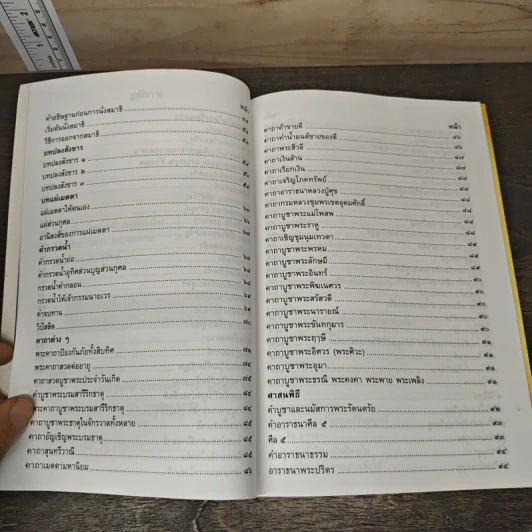 หน้า
คำอธิษฐานก่อนการนั่งสมาธิ
เริ่มต้นนั่งสมาธิ
วิธีการออกจากสมาธิ
บทปลงสังขาร
บทปลงสังขาร ๑
บทปลงสังขาร ๒
บทปลงสังขาร ๓
บทแผ่เมตตา
แผ่เมตตาให้ตนเอง
แผ่ส่วนกุศล
อานิสงส์ของการแผ่เมตตา
คำกรวดน้ำ
คำกรวดน้ำย่อ
คำกรวดน้ำอุทิศส่วนบุญส่วนกุศล
กรวดน้ำคำกลอน
กรวดน้ำให้เจ้ากรรมนายเวร
คำจบทาน
วิปัสสิต ๗๐
คาถาต่าง ๆ
พระคาถาป้องกันภัยทั้งสิบทิศ ๗๑
พระคาถาสวดต่ออายุ ๗๔
คาถาสวดบูชาพระประจำวันเกิด ๗๕
คำบูชาพระบรมสารีริกธาตุ ๘๔
พระคาถาบูชาพระบรมสารีริกธาตุ ๘๔
คาถาบูชาพระธาตุในจักรวาลทั้งหลาย ๘๕
คาถาอัญเชิญพระบรมธาตุ ๘๕
คาถาสุนทรีวาณี ๘๕
คาถาเมตตามหานิยม ๘๖
หน้า
คาถาค้าขายดี ๘๖
คาถาทำน้ำมนต์ขายของดี ๘๖
คาถาพระสีวลี ๘๗
คาถาเงินล้าน ๘๗
คาถาเรียกเงิน ๘๗
คาถาเจริญโภคทรัพย์ ๘๘
คาถาอาราธนาหลวงปู่ศุข ๘๘
คาถากรมหลวงชุมพรเขตอุดมศักดิ์ ๘๘
คาถาบูชาพระแม่โพสพ ๘๘
คาถาบูชาพระราหู ๘๘
คาถาเชิญชุมนุมเทวดา ๘๙
คาถาบูชาพระพรหม ๘๙
คาถาบูชาพระลักษมี ๘๙
คาถาบูชาพระอินทร์ ๘๙
คาถาบูชาพระพิฆเนศวร ๙๐
คาถาบูชาพระสรัสวดี ๙๐
คาถาบูชาพระนารายณ์ ๙๐
คาถาบูชาพระขันทกุมาร ๙๐
คาถาบูชาพระฤาษี ๙๐
คาถาบูชาพระอิศวร (พระศิวะ) ๙๑
คาถาบูชาพระอุมา ๙๑
คาถาบูชาพระธรณี พระคงคา พระพาย พระเพลิง ๙๑
ศาสนพิธี
คำบูชาและนมัสการพระรัตนตรัย ๙๒
คำอาราธนาศีล ๕ ๙๓
ศีล ๕ ๙๓
คำอาราธนาธรรม ๙๔
อาราธนาพระปริตร ๙๔